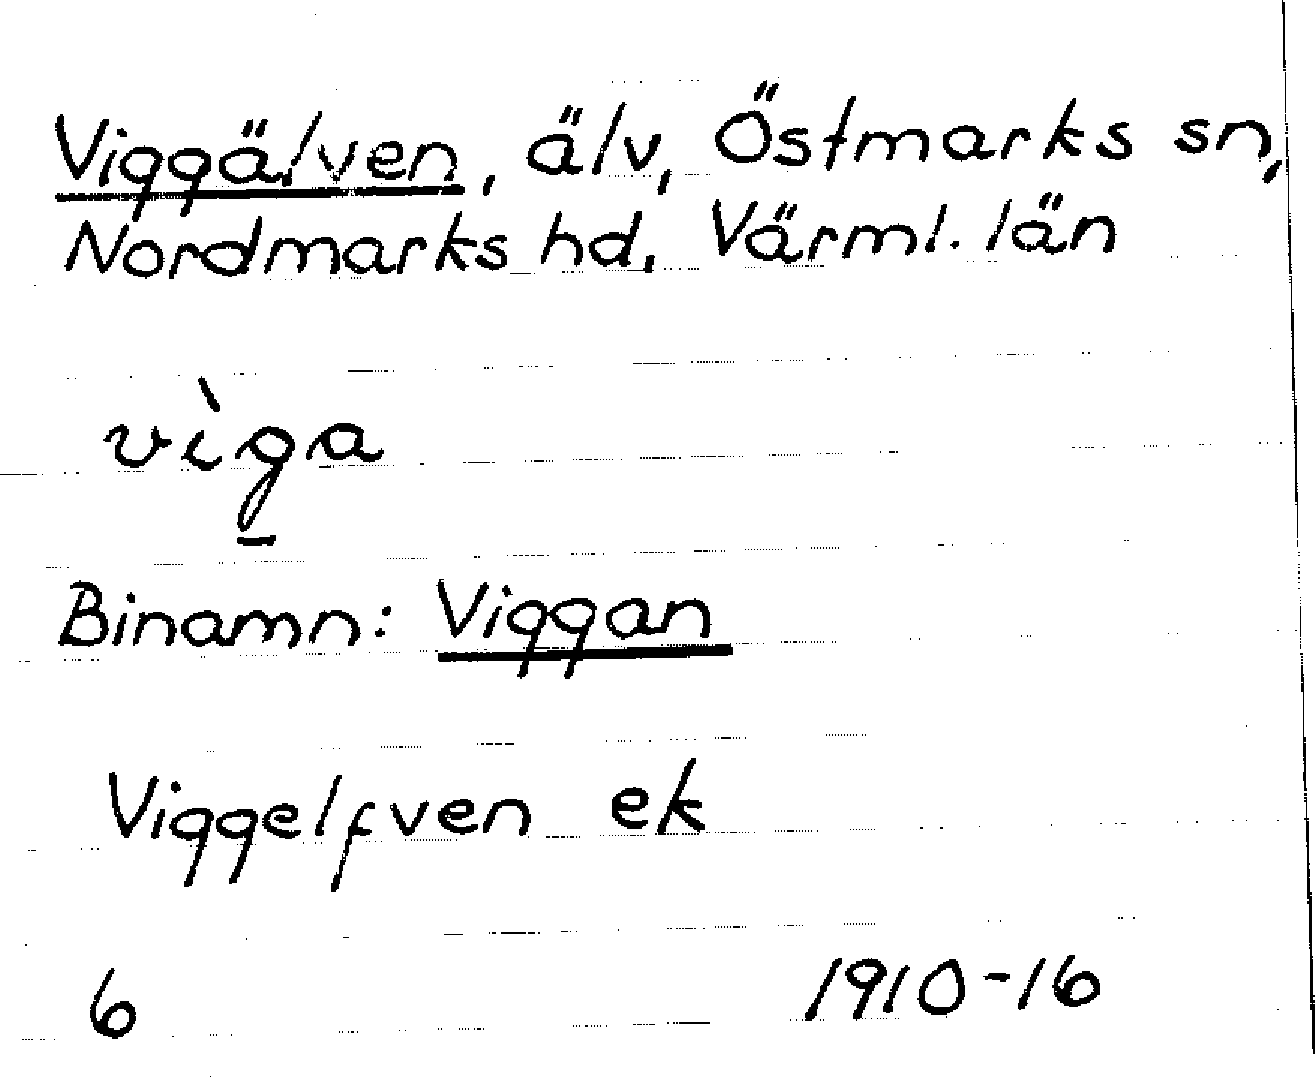 Viggälven, älv, Östmarks sn,
Nordmarks hd, Värml. län
vìga
Binamn: Viggan
Viggelfven ek
6 1910-16